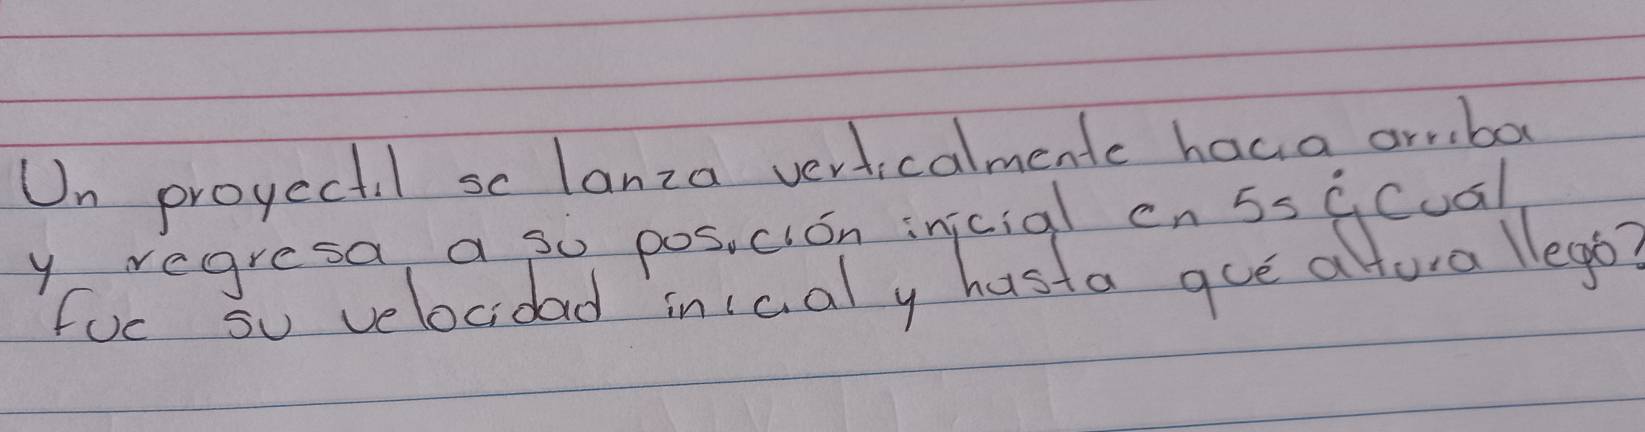 Un proyectil se lanza verticalmente hacia arriba
y regresa a su posición inicial en 5s ¿Cuál
fue su velocidad inicial y hasta qué altura llegó?